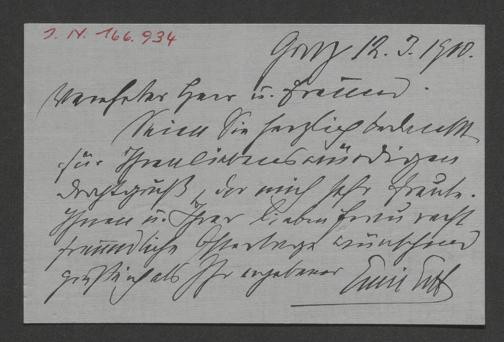 J. N. 166.934
Graz 12. 3. 1910.
Verehrter Herr u. Freund.
Seien Sie herzlich bedankt
für Ihren liebenswürdigen
Drahtgruß, der mich sehr freute.
Ihnen u. Ihrer lieben Frau recht
freundliche Ostertage wünschend
grüße ich als Ihr ergebener Emil Ertl